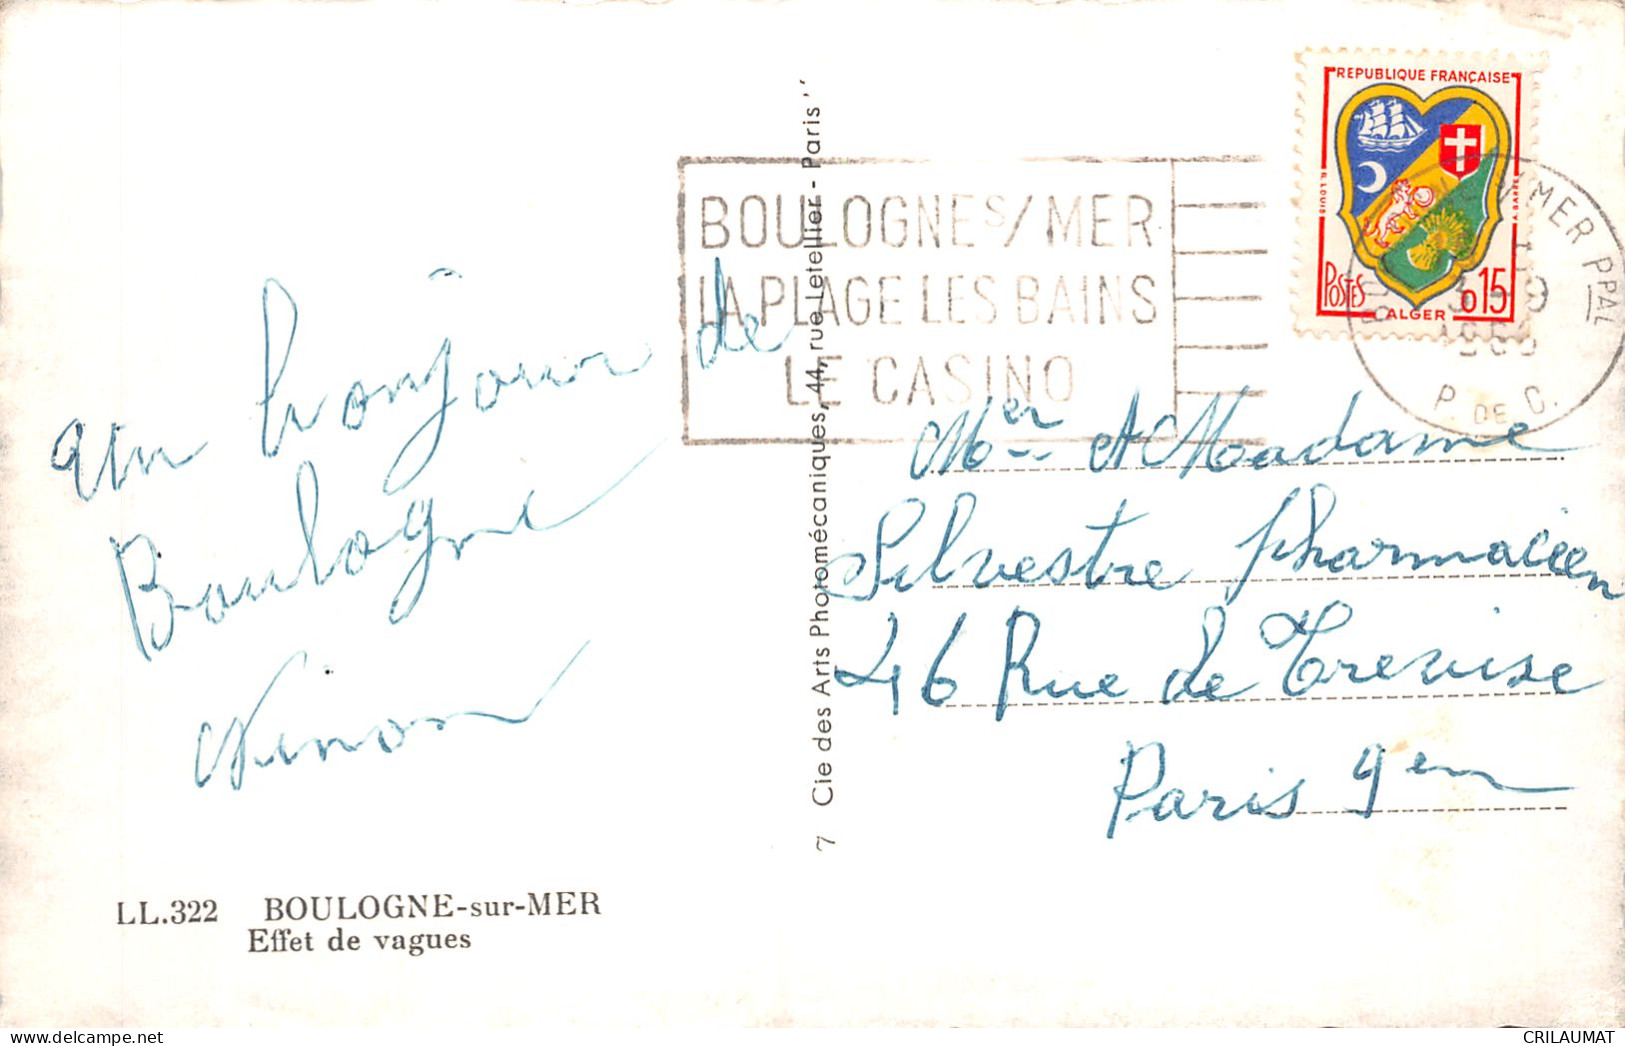 un bonjour de
Boulogne
Ninon
LL.322 BOULOGNE-sur-MER
Effet de vagues
7 Cie des Arts Photomécaniques, 44, rue Letellier - Paris
BOULOGNE S/MER
LA PLAGE LES BAINS
LE CASINO
REPUBLIQUE FRANÇAISE
R. LOUIS
POSTES
0,15
ALGER
MER PPAL
P. DE C.
Mer et Madame
Silvestre pharmacien
46 Rue de Trevise
Paris 9em
CRILAUMAT